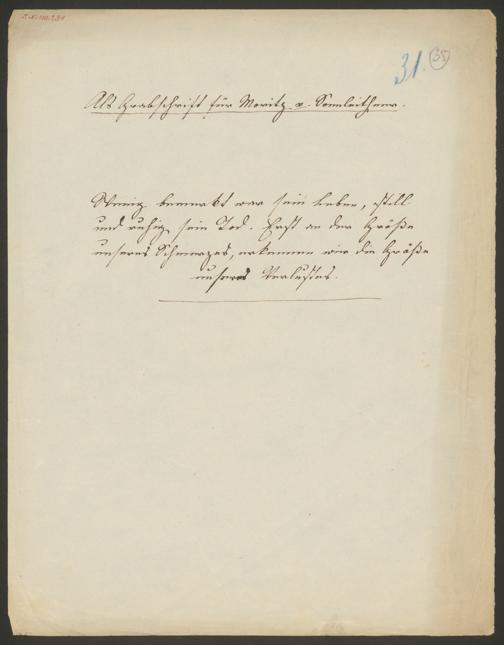 31.
35
Als Grabschrift für Moritz v. Sonnleithner.
Wenig bemerkt war sein Leben, still
und ruhig sein Tod. Erst an der Größe
unseres Schmerzes, erkennen wir die Größe
unseres Verlustes.